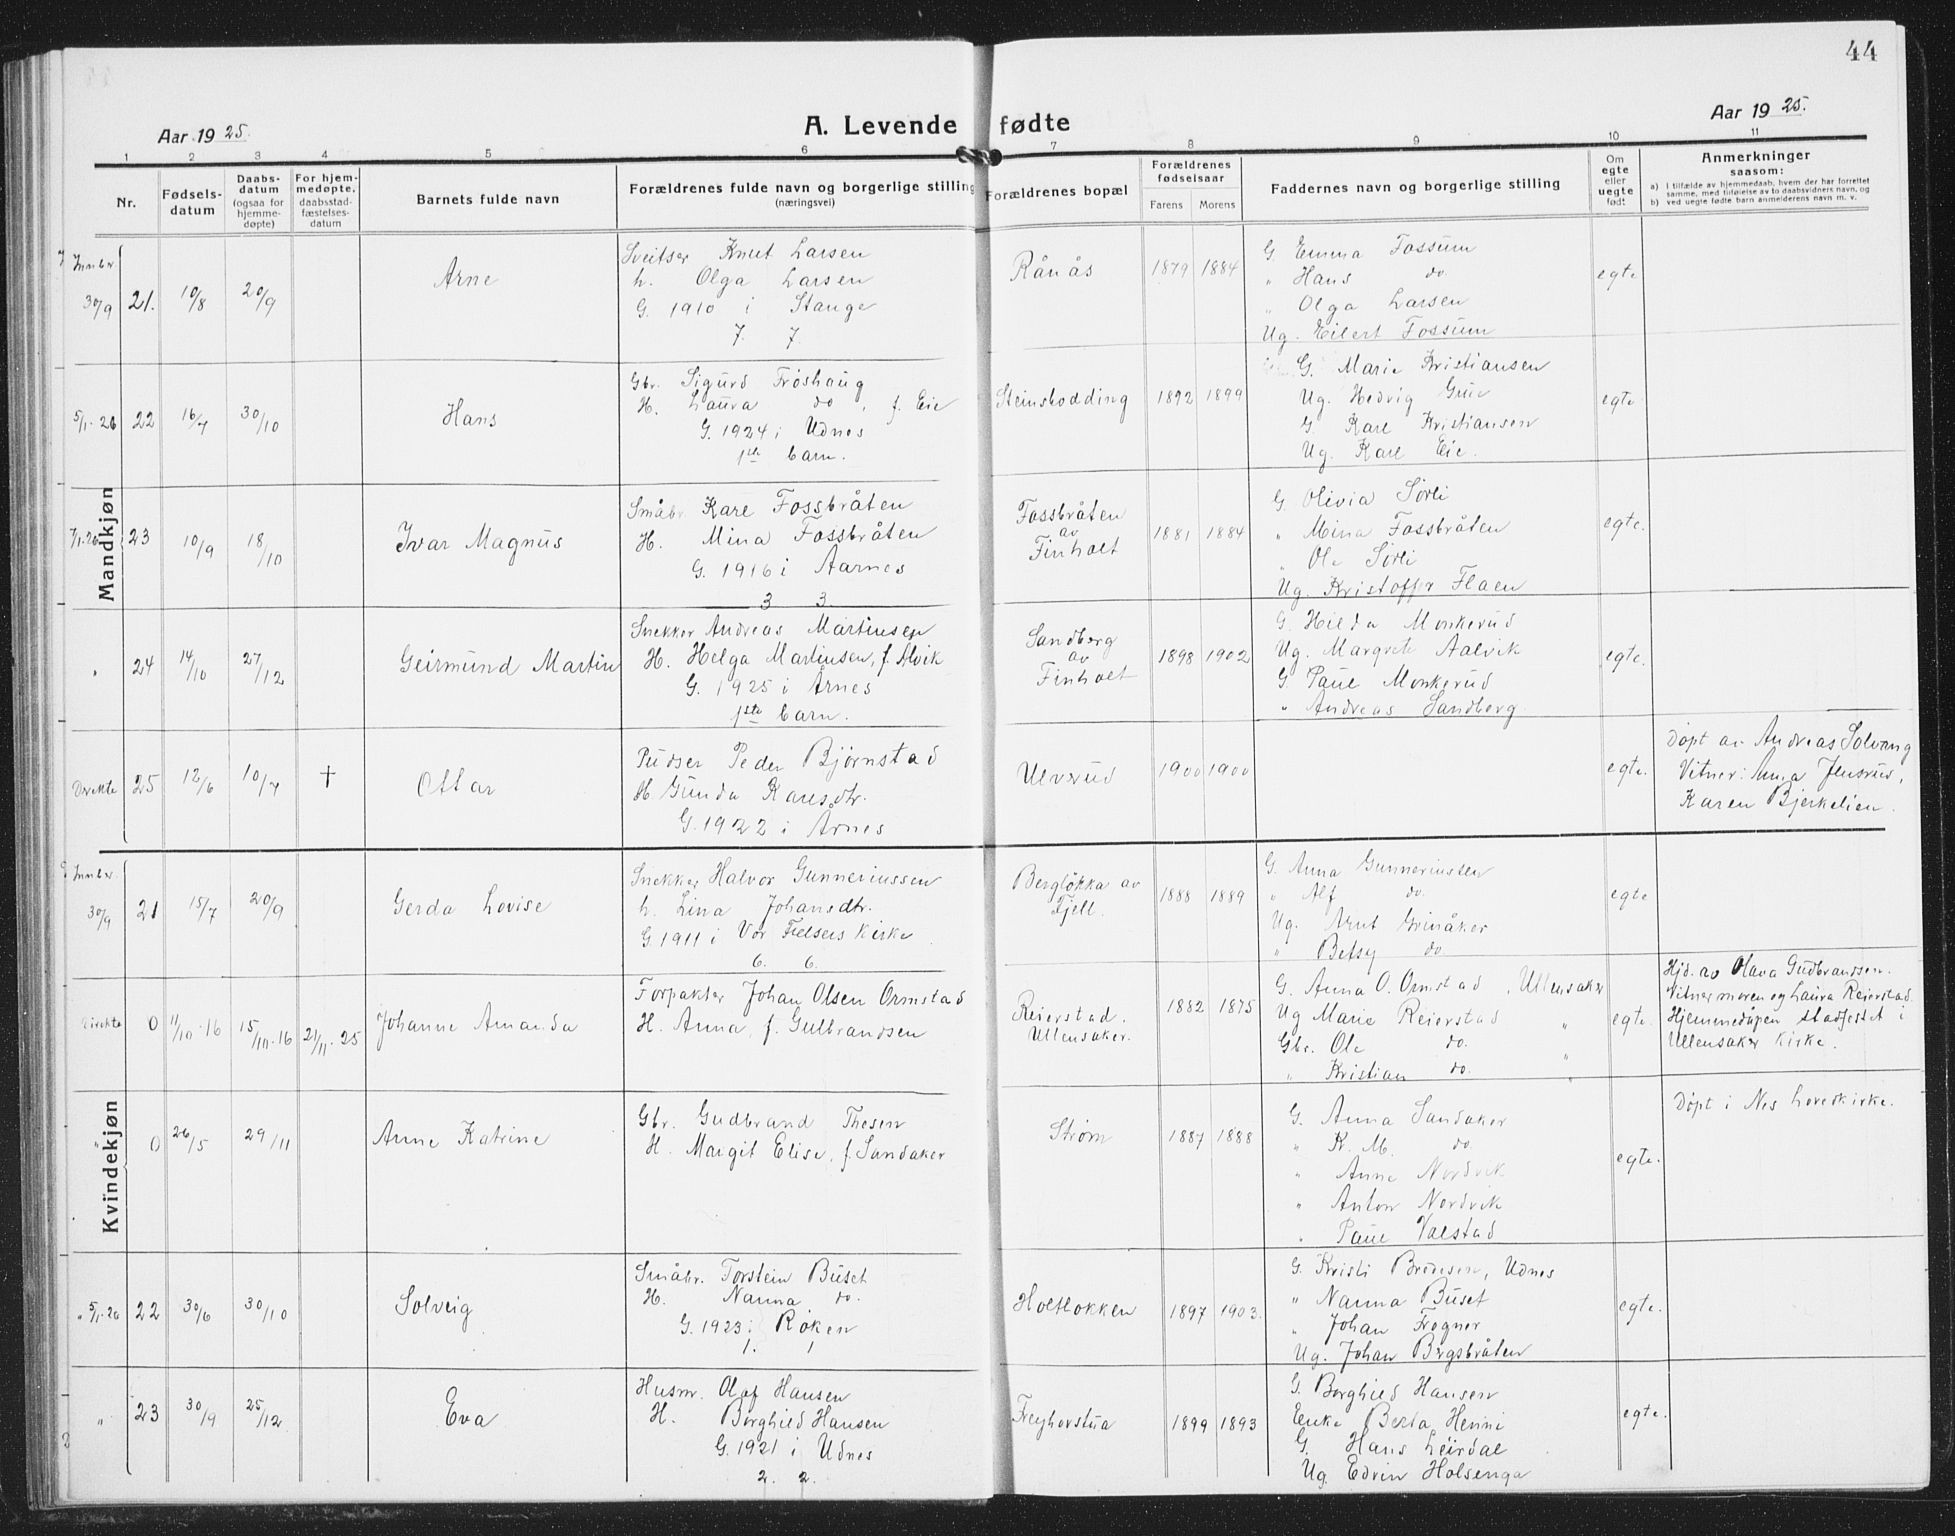 44
Aar 1925.
A. Levende fødte
Aar 1925.
1 2 3 4 5 6 7 8 9 10 11
Nr.
Fødsels-
datum
Daabs-
datum
(ogsaa for
hjemme-
døpte)
For hjem-
medøpte,
daabsstad-
fæstelses-
datum
Barnets fulde navn
Forældrenes fulde navn og borgerlige stilling
(næringsvei)
Forældrenes bopæl
Forældrenes
fødselsaar
Farens Morens
Faddernes navn og borgerlige stilling
Om
egte
eller
uegte
født
Anmerkninger
saasom:
a) I tilfælde av hjemmedaab, hvem der har forrettet
samme, med tilføielse av to daabsvidners navn, og
b) ved uegte fødte barn anmelderens navn m. v.
Mandkjøn
Innber.
30/9 21. 10/8 20/9
Arne
Sveitser Knut Larsen
h. Olga Larsen
G. 1910 i Stange
7. 7.
Rånås
1879 1884
G. Emma Fossum
" Hans do
" Olga Larsen
Ug. Eilert Fossum
egte
5/1-26 22 16/7 30/10
Hans
Gbr. Sigurd Frøshaug
H. Laura do, f. Eie
G. 1924 i Udnes
1ste barn.
Steinsbodding
1892 1899
G. Marie Kristiansen
Ug. Hedvig
G. Karl Kristiansen
Ug. Karl Eie.
egte
7/1-26 23 10/9 18/10
Ivar Magnus
Småbr Karl Fossbråten
H. Mina Fossbråten
G. 1916 i Aarnes
3 3.
Fossbråten
av
Finholt
1881 1884
G. Olivia Sørli
" Mina Fossbråten
" Ole Sørli
Ug. Kristoffer Flaen
egte.
" 24 14/10 27/12
Geirmund Martin
Snekker Andreas Martinsen
H. Helga Martinsen, f. Alvik
G. 1925 i Årnes
1ste barn.
Sandberg
av
Finholt
1898 1902
G. Hilda Monkerud
Ug. Margrete Aalvik
G. Paul Monkerud
" Andreas Sandberg.
egte.
Direkte 25 12/6 10/7 †
Ottar
Pudser Peder Bjørnstad
H. Gunda Karlsdtr.
G. 1922 i Årnes
Ulverud
1900 1900
egte.
Døpt av Andreas Solvang
Vitner: Anna Jensrud,
Karen Bjerkelien.
Kvindekjøn
Innber.
30/9 21 15/7 20/9
Gerda Lovise
Snekker Halvor Gunneriussen
h. Lina Johansdtr.
G. 1911 i Vor Frelsers Kirke
6. 6.
Bergløkka av
Fjell.
1888 1889
G. Anna Gunneriussen
" Alf do.
Ug. Arnt Grinåker
" Betsy do.
egte
Direkte 0 11/10-16 15/10-16 21/11-25
Johanne Amanda
Forpakter Johan Olsen Ormstad
H. Anna, f. Gulbrandsen
Reierstad.
Ullensaker.
1882 1875
G. Anna O. Ormstad, Ullensaker
Ug Marie Reierstad "
Gbr. Ole do. "
" Kristian do. "
egte.
Hjd. av Olava Gudbrandsen.
Vitner moren og Laura Reierstad.
Hjemmedåpen stadfestet i
Ullensaker kirke.
" 0 26/5 29/11
Anne Katrine
Gbr. Gudbrand Thesen
H. Margit Elise, f. Sandaker
Strøm
1887 1888
G. Anna Sandaker
" K. M. do
" Anne Nordvik
" Anton Nordvik
" Paul Valstad
egte.
Døpt i Nes hovedkirke.
" 5/1-26 22 30/6 30/10
Solveig
Småbr. Torstein Buset
H. Nanna do.
G. 1923 i Røken
1. 1
Holtløkken
1897 1903.
G. Kristi Brodesen, Udnes
" Nanna Buset
" Johan Frogner
Ug. Johan Bergsbråten
egte.
" 23 30/9 25/12
Eva
Husm. Olaf Hansen
H. Borghild Hansen
G. 1921 i Udnes
2. 2.
Freyhovstua
1899 1893
G. Borghild Hansen
Enke Berta Henni
G. Hans Leirdal
Ug. Edvin Holsenga
egte.